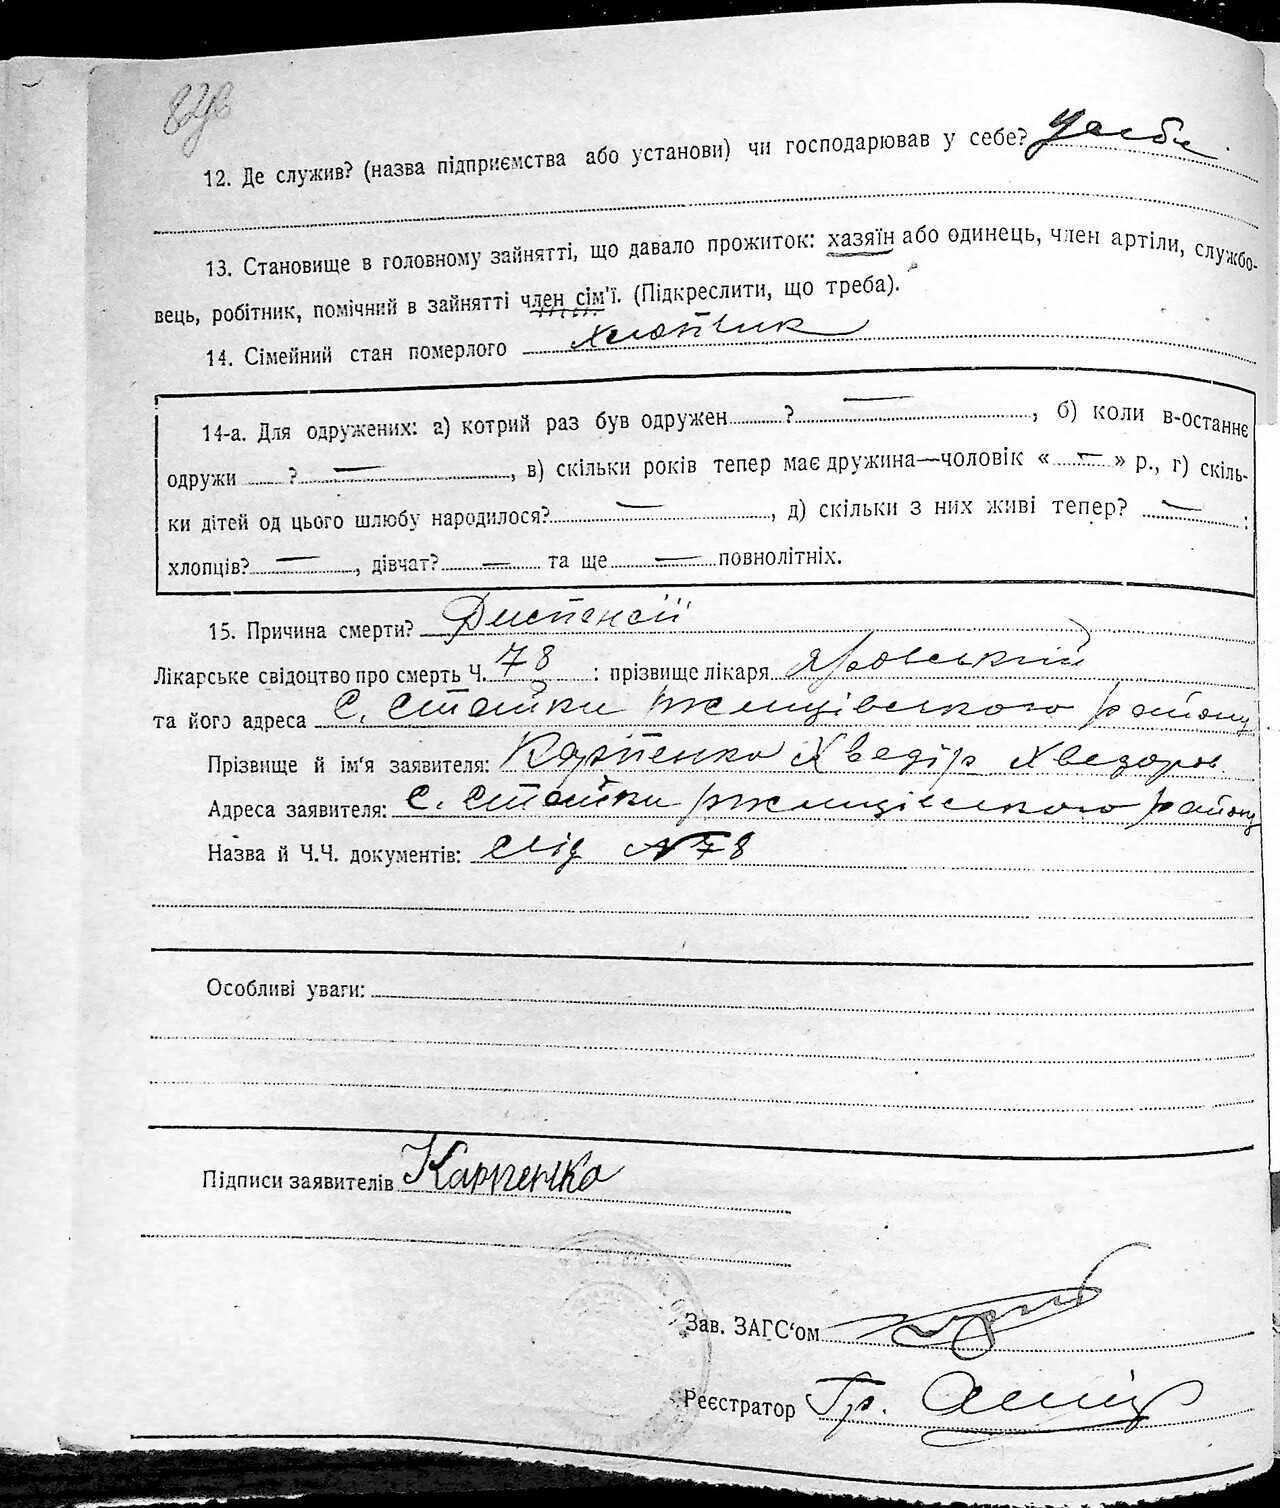 12. Де служив? (назва підприємства або установи) чи господарював у себе? У себе
13. Становище в головному зайнятті, що давало прожиток: хазяїн або одинець, член артіли, службо-
вець, робітник, помічний в зайнятті член сім'ї. (Підкреслити, що треба).
14. Сімейний стан померлого Хлопчик
14-а. Для одружених: а) котрий раз був одружен ? — , б) коли в-останнє
одружи ? — , в) скільки років тепер має дружина—чоловік « — » р., г) скіль-
ки дітей од цього шлюбу народилося? — , д) скільки з них живі тепер? — :
хлопців? — , дівчат? — та ще — повнолітніх.
15. Причина смерти? Диспенсії
Лікарське свідоцтво про смерть Ч. 78 : прізвище лікаря Яровський
та його адреса С. Стайки ржищівського району
Прізвище й ім'я заявителя: Карпенко Хведір Хведоров
Адреса заявителя: С. Стайки ржищівського району
Назва й Ч.Ч. документів: №78
Особливі уваги:
Підписи заявителів Карпенко
Зав. ЗАГС'ом
Реєстратор Гр.